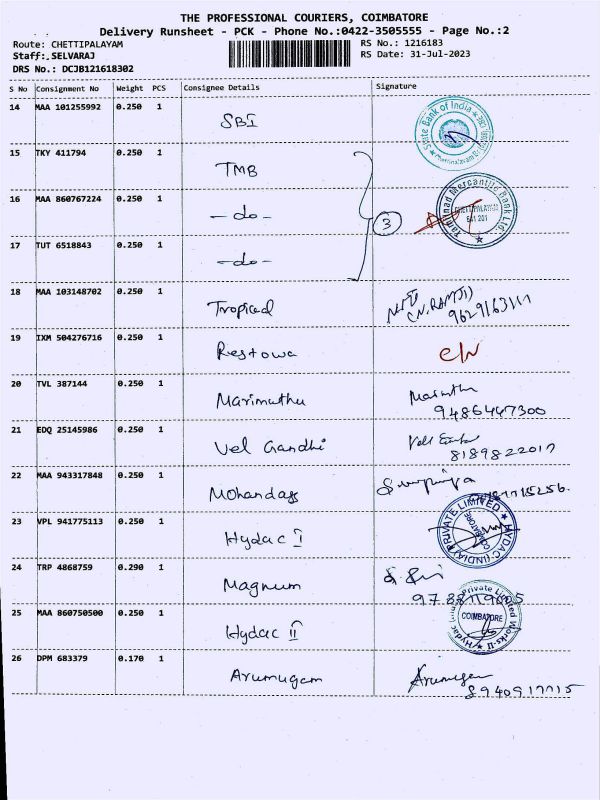 THE PROFESSIONAL COURIERS, COIMBATORE
Delivery Runsheet - PCK - Phone No.:0422-3505555 - Page No.:2
Route: CHETTIPALAYAM RS No.: 1216183
Staff:.SELVARAJ RS Date: 31-Jul-2023
DRS No.: DCJB121618302
S No Consignment No Weight PCS Consignee Details Signature
14 MAA 101255992 0.250 1 SBI
State Bank of India
15 TKY 411794 0.250 1 TMB
16 MAA 860767224 0.250 1 -do- 3
Tamilnad Mercantile Bank Ltd
CHETTIPALAYAM
641 201
17 TUT 6518843 0.250 1 -do-
18 MAA 103148702 0.250 1 Tropical
(N.RAMJI)
19 IXM 504276716 0.250 1 Restowa
20 TVL 387144 0.250 1 Marimuthu
9486447300
21 EDQ 25145986 0.250 1 Vel Gandhi
8189822017
22 MAA 943317848 0.250 1 Mohandass
23 VPL 941775113 0.250 1 Hydac I
HYDAC (INDIA) PRIVATE LIMITED
COIMBATORE
24 TRP 4868759 0.290 1 Magnum
25 MAA 860750500 0.250 1 Hydac II
COIMBATORE
26 DPM 683379 0.170 1 Arumugam Arumugam